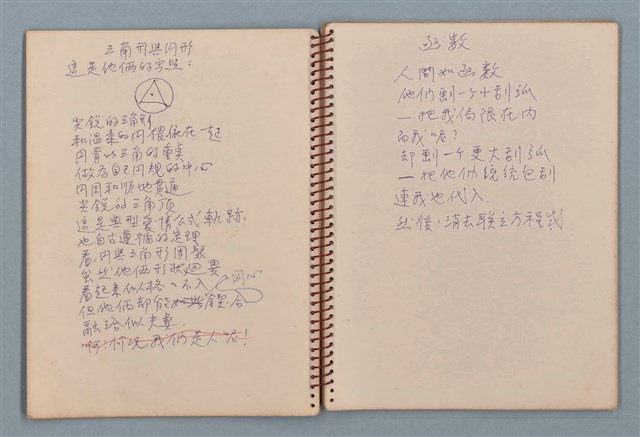 三角形與円形
這是他倆的字照：
尖銳的三角形
和溫柔的円偎依在一起
円肯以三角的重点
做為自己円規的中心
円周和順地貫通
尖銳的三角頂
這是典型愛情公式軌跡
也自古遵循的定理
看，円與三角形團聚
虽然他倆形狀迥異
看起來似格格不入
但他倆却能契合
同心
融洽似夫妻
啊！何況我們是人呢！
函数
人間如函数
他們劃一个小刮弧
一把我侷限在內
而我呢？
却劃一个更大刮弧
一把他们統統包刮
連我也代入.
然後，消去联立方程式